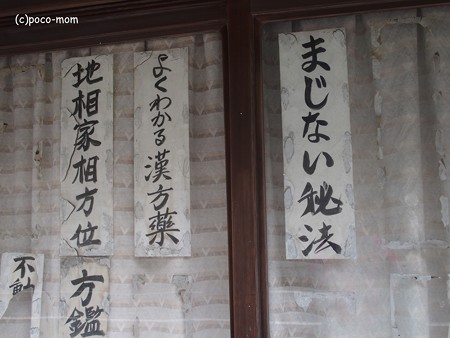 (c)poco-mom
まじない秘法
よくわかる漢方薬
地相家相方位
方鑑
不動